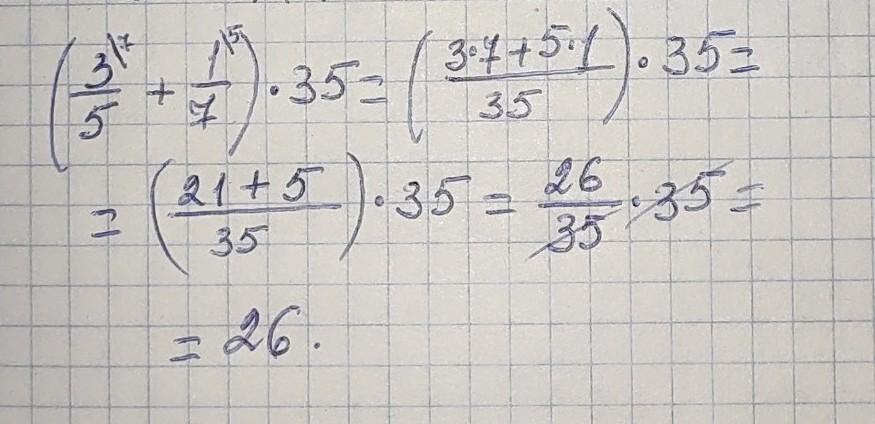 (3\7/5 + 1\5/7) · 35 = (3·7+5·1/35) · 35 =
= (21+5/35) · 35 = 26/35 · 35 =
= 26.